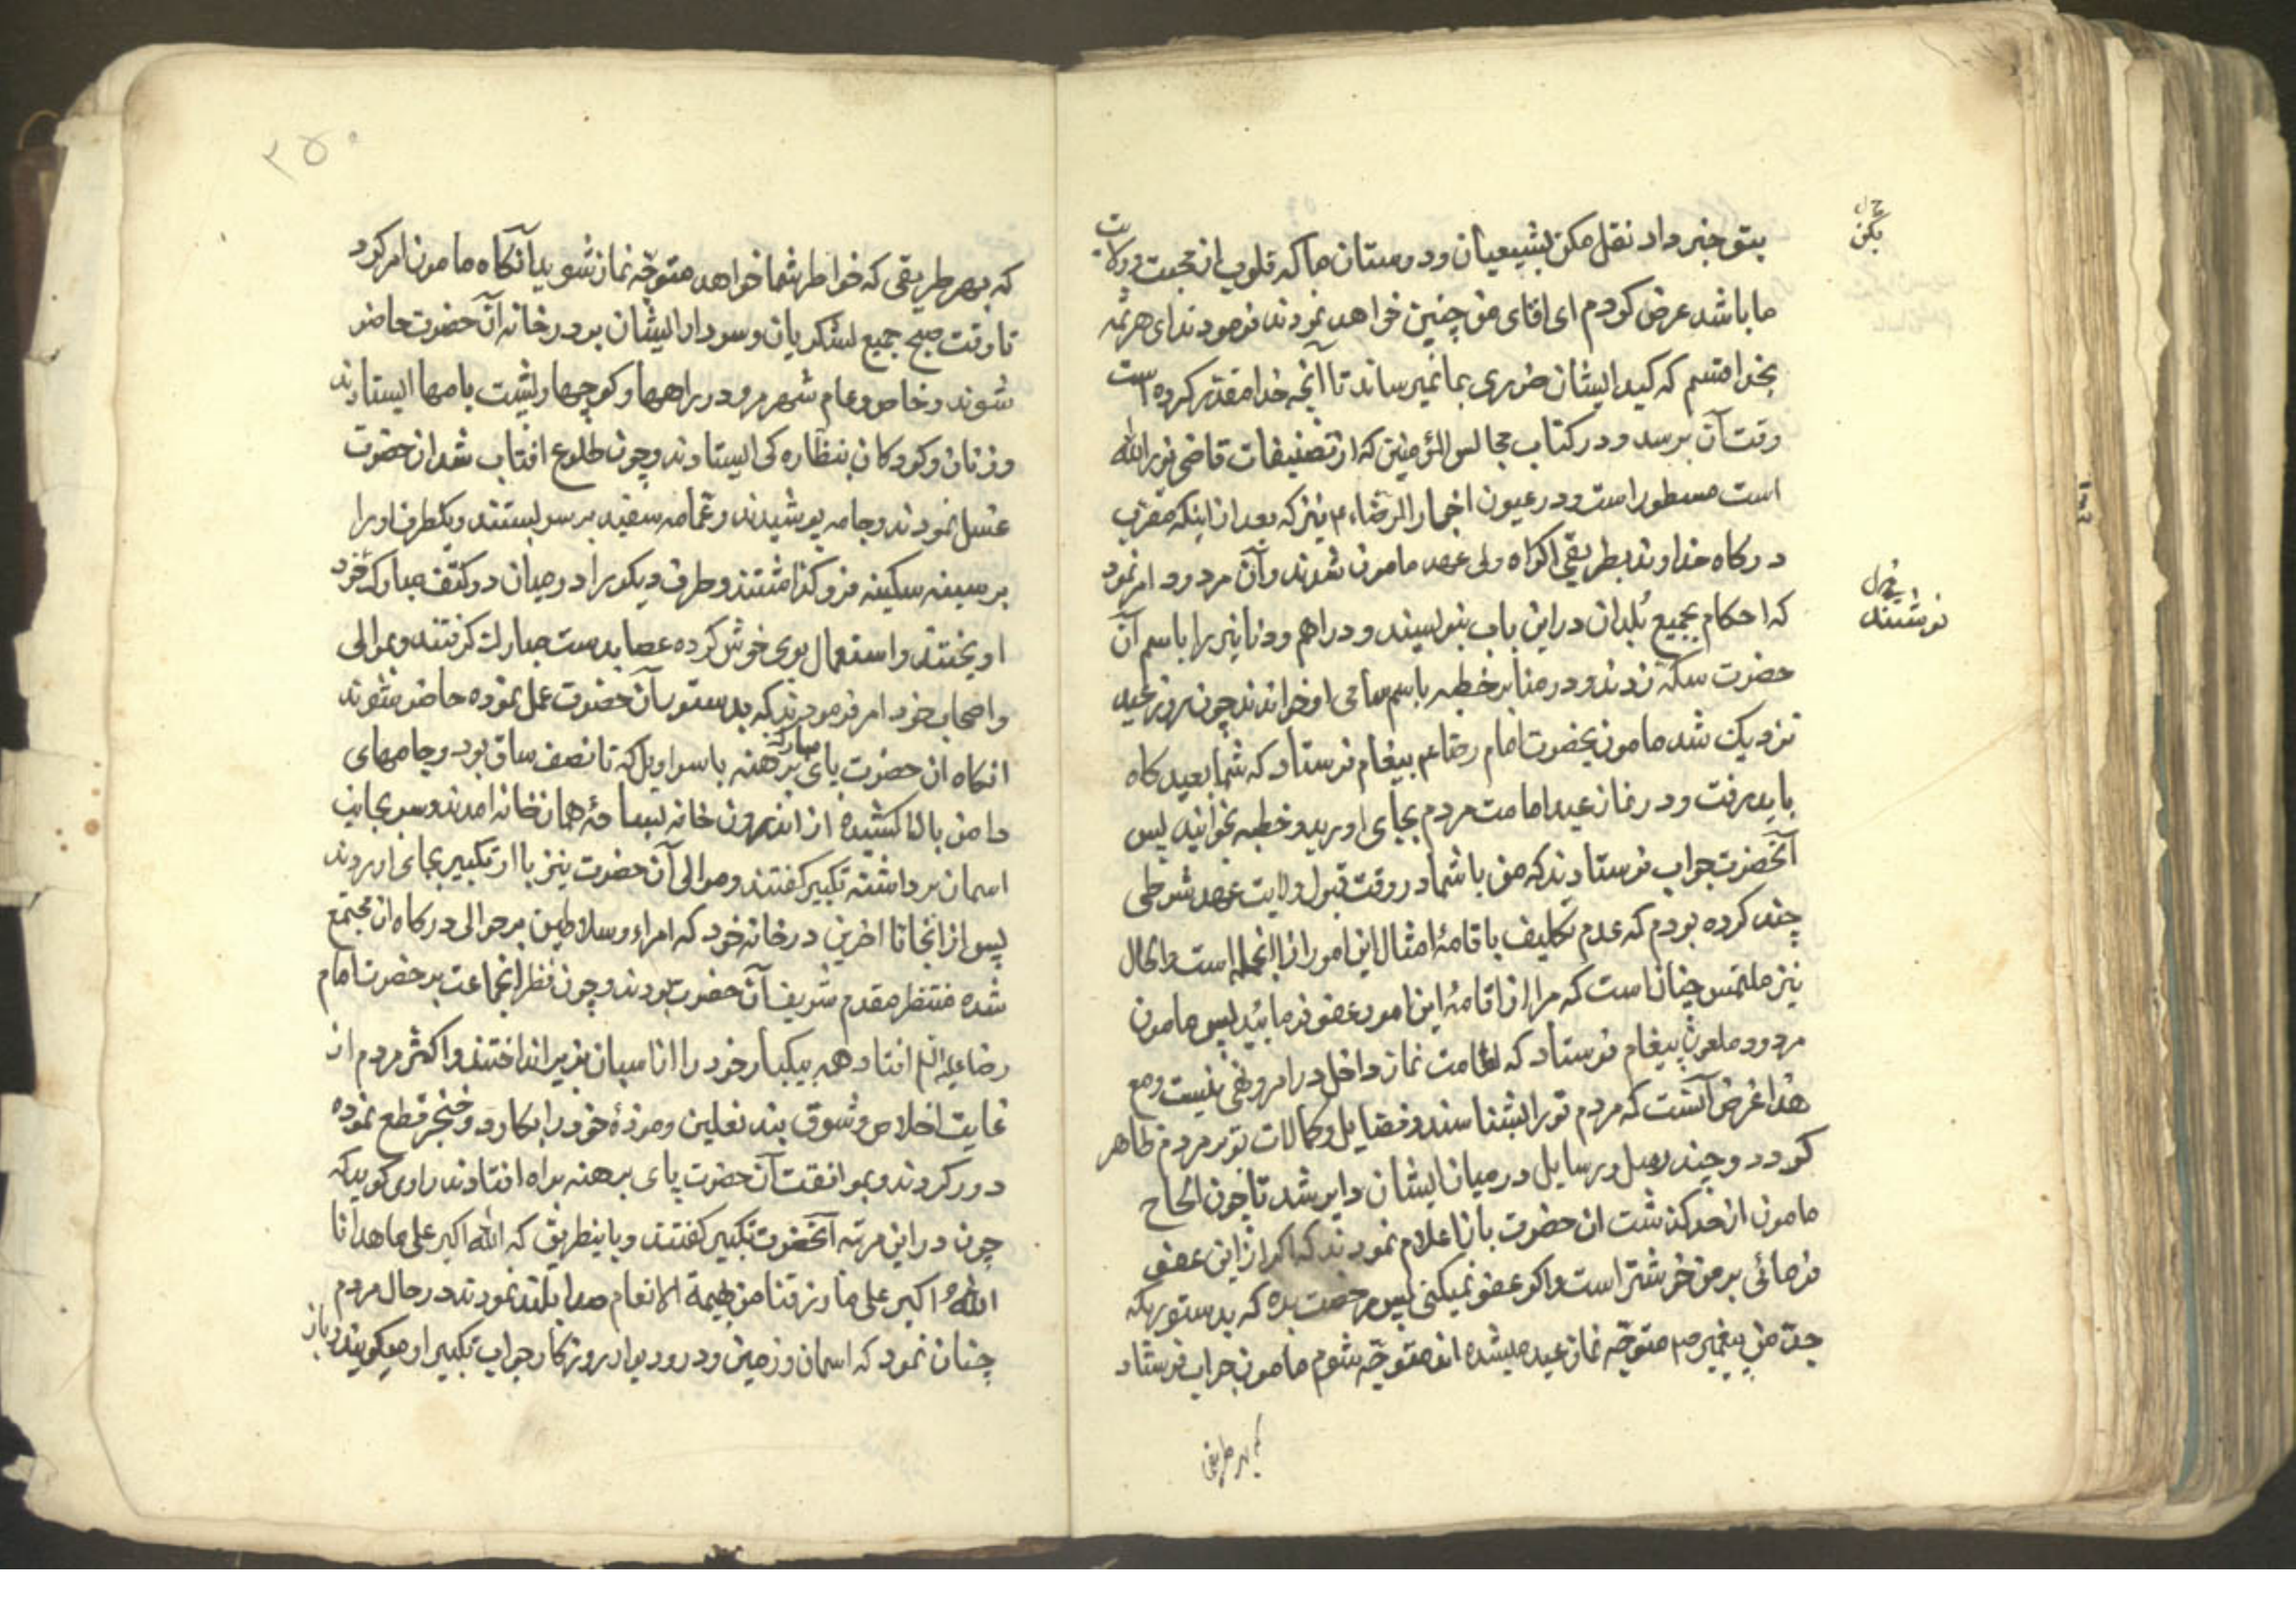 بتو خبر داد نقل مکن بشیعیان و دوستان ما که قلوب از محبت و ولایت
ما باشد عرض کردم ای اقای من چنین خواهد نمودند فرمودند ای هرثمه
بخدا قسم که کید ایشان ضرری بما نمیرساند تا آنچه خدا مقدر کرده است
وقت آن برسد و در کتاب مجالس المؤمنین که از تصنیفات قاضی نورالله
است مسطور است و در عیون اخبار الرضاء ع نیز که بعد از اینکه مقرب
درکاه خداوند بطریقی اکراه ولی عهد مامون شدند و آن مردود امر نمود
که احکام بجمیع بُلدان در این باب بنویسند و دراهم و دنانیر را باسم آن
حضرت سکه زدند و در منابر خطبه باسم سامی او خواندند چون روز عید
نزدیک شد مامون بحضرت امام رضا ع پیغام فرستاد که شما بعید کاه
باید رفت و در نماز عید امامت مردم بجای اورید و خطبه بخوانید پس
آنحضرت جواب فرستادند که من با شما در وقت قبول ولایت عهد شرطی
چند کرده بودم که عدم تکلیف باقامهٔ امثال این امور از انجمله است و الحال
نیز ملتمس چنان است که مرا از اقامهٔ این امور عفو فرمائید پس مامون
مردود ملعون پیغام فرستاد که اقامت نماز داخل در امر و نهی نیست و مع
هذا غرض آنست که مردم تو را بشناسند و فضایل و کمالات تو بر مردم ظاهر
کردد و چند رسل و رسایل در میان ایشان دایر شد تا چون الحاح
مامون از حد کذشت ان حضرت باز اعلام نمودند که اکر از این عفو
فرمائی بر من خوشتر است و اکر عفو نمیکنی پس مرخصت بده که بدستوریکه
جدّ من پیغمبر ص متوجّه نماز عید میشده اند متوجّه شوم مامون جواب فرستاد
که بهر طریقی
بکن
نوشتند
۲۵۰
که بهر طریقی که خواطر شما خواهد متوجّه نماز شوید آنکاه مامون امر کرد
تا وقت صبح جمیع لشکریان و سرداران ایشان بر در خانه آن حضرت حاضر
شوند و خاص و عام شهر مرو در راهها و کوچها و پشت بامها ایستادند
و زنان و کودکان بنظاره کی ایستادند و چون طلوع افتاب شد ان حضرت
غسل نمودند و جامه پوشیدند و عمّامه سفید بر سر بستند و یکطرف او را
بر سینه سکینه فرو کذاشتند و طرف دیکر را در میان دو کتف مبارک خود
اویختند و استعمال بوی خوش کرده عصا بدست مبارک کرفتند و بموالی
و اصحاب خود امر فرمودند که بدستور آن حضرت عمل نموده حاضر شوند
انکاه ان حضرت پای مبارک برهنه با سراویل که تا نصف ساق بود و جامهای
دامن بالا کشیده از اندرون خانه بساحهٔ همان خانه امدند و سر بجانب
اسمان برداشته تکبیر کفتند و موالی آن حضرت نیز با او تکبیر بجای اوردند
پس از انجا تا اخرین در خانه خود که امراء و سلاطین بر حوالی درکاه ان مجتمع
شده منتظر مقدم شریف آن حضرت بودند و چون نظر انجماعت بر حضرت امام
رضا علیه السلام افتاد همه بیکبار خود را از اسبان بزیر انداختند و اکثر مردم از
غایت اخلاص و شوق بند نعلین و موزهٔ خود را بکارد و خنجر قطع نموده
دور کردند و بموافقت آن حضرت پای برهنه براه افتادند راوی کوید که
چون در این مرتبه آنحضرت تکبیر کفتند و باینطریق که الله اکبر علی ما هدانا
اللهُ اکبر علی ما رزقنا من بهیمة الانعام صدا بلند نمودند در حال مردم
چنان نمود که اسمان و زمین و در و دیوار روزکار جواب تکبیر او میکویند و باز